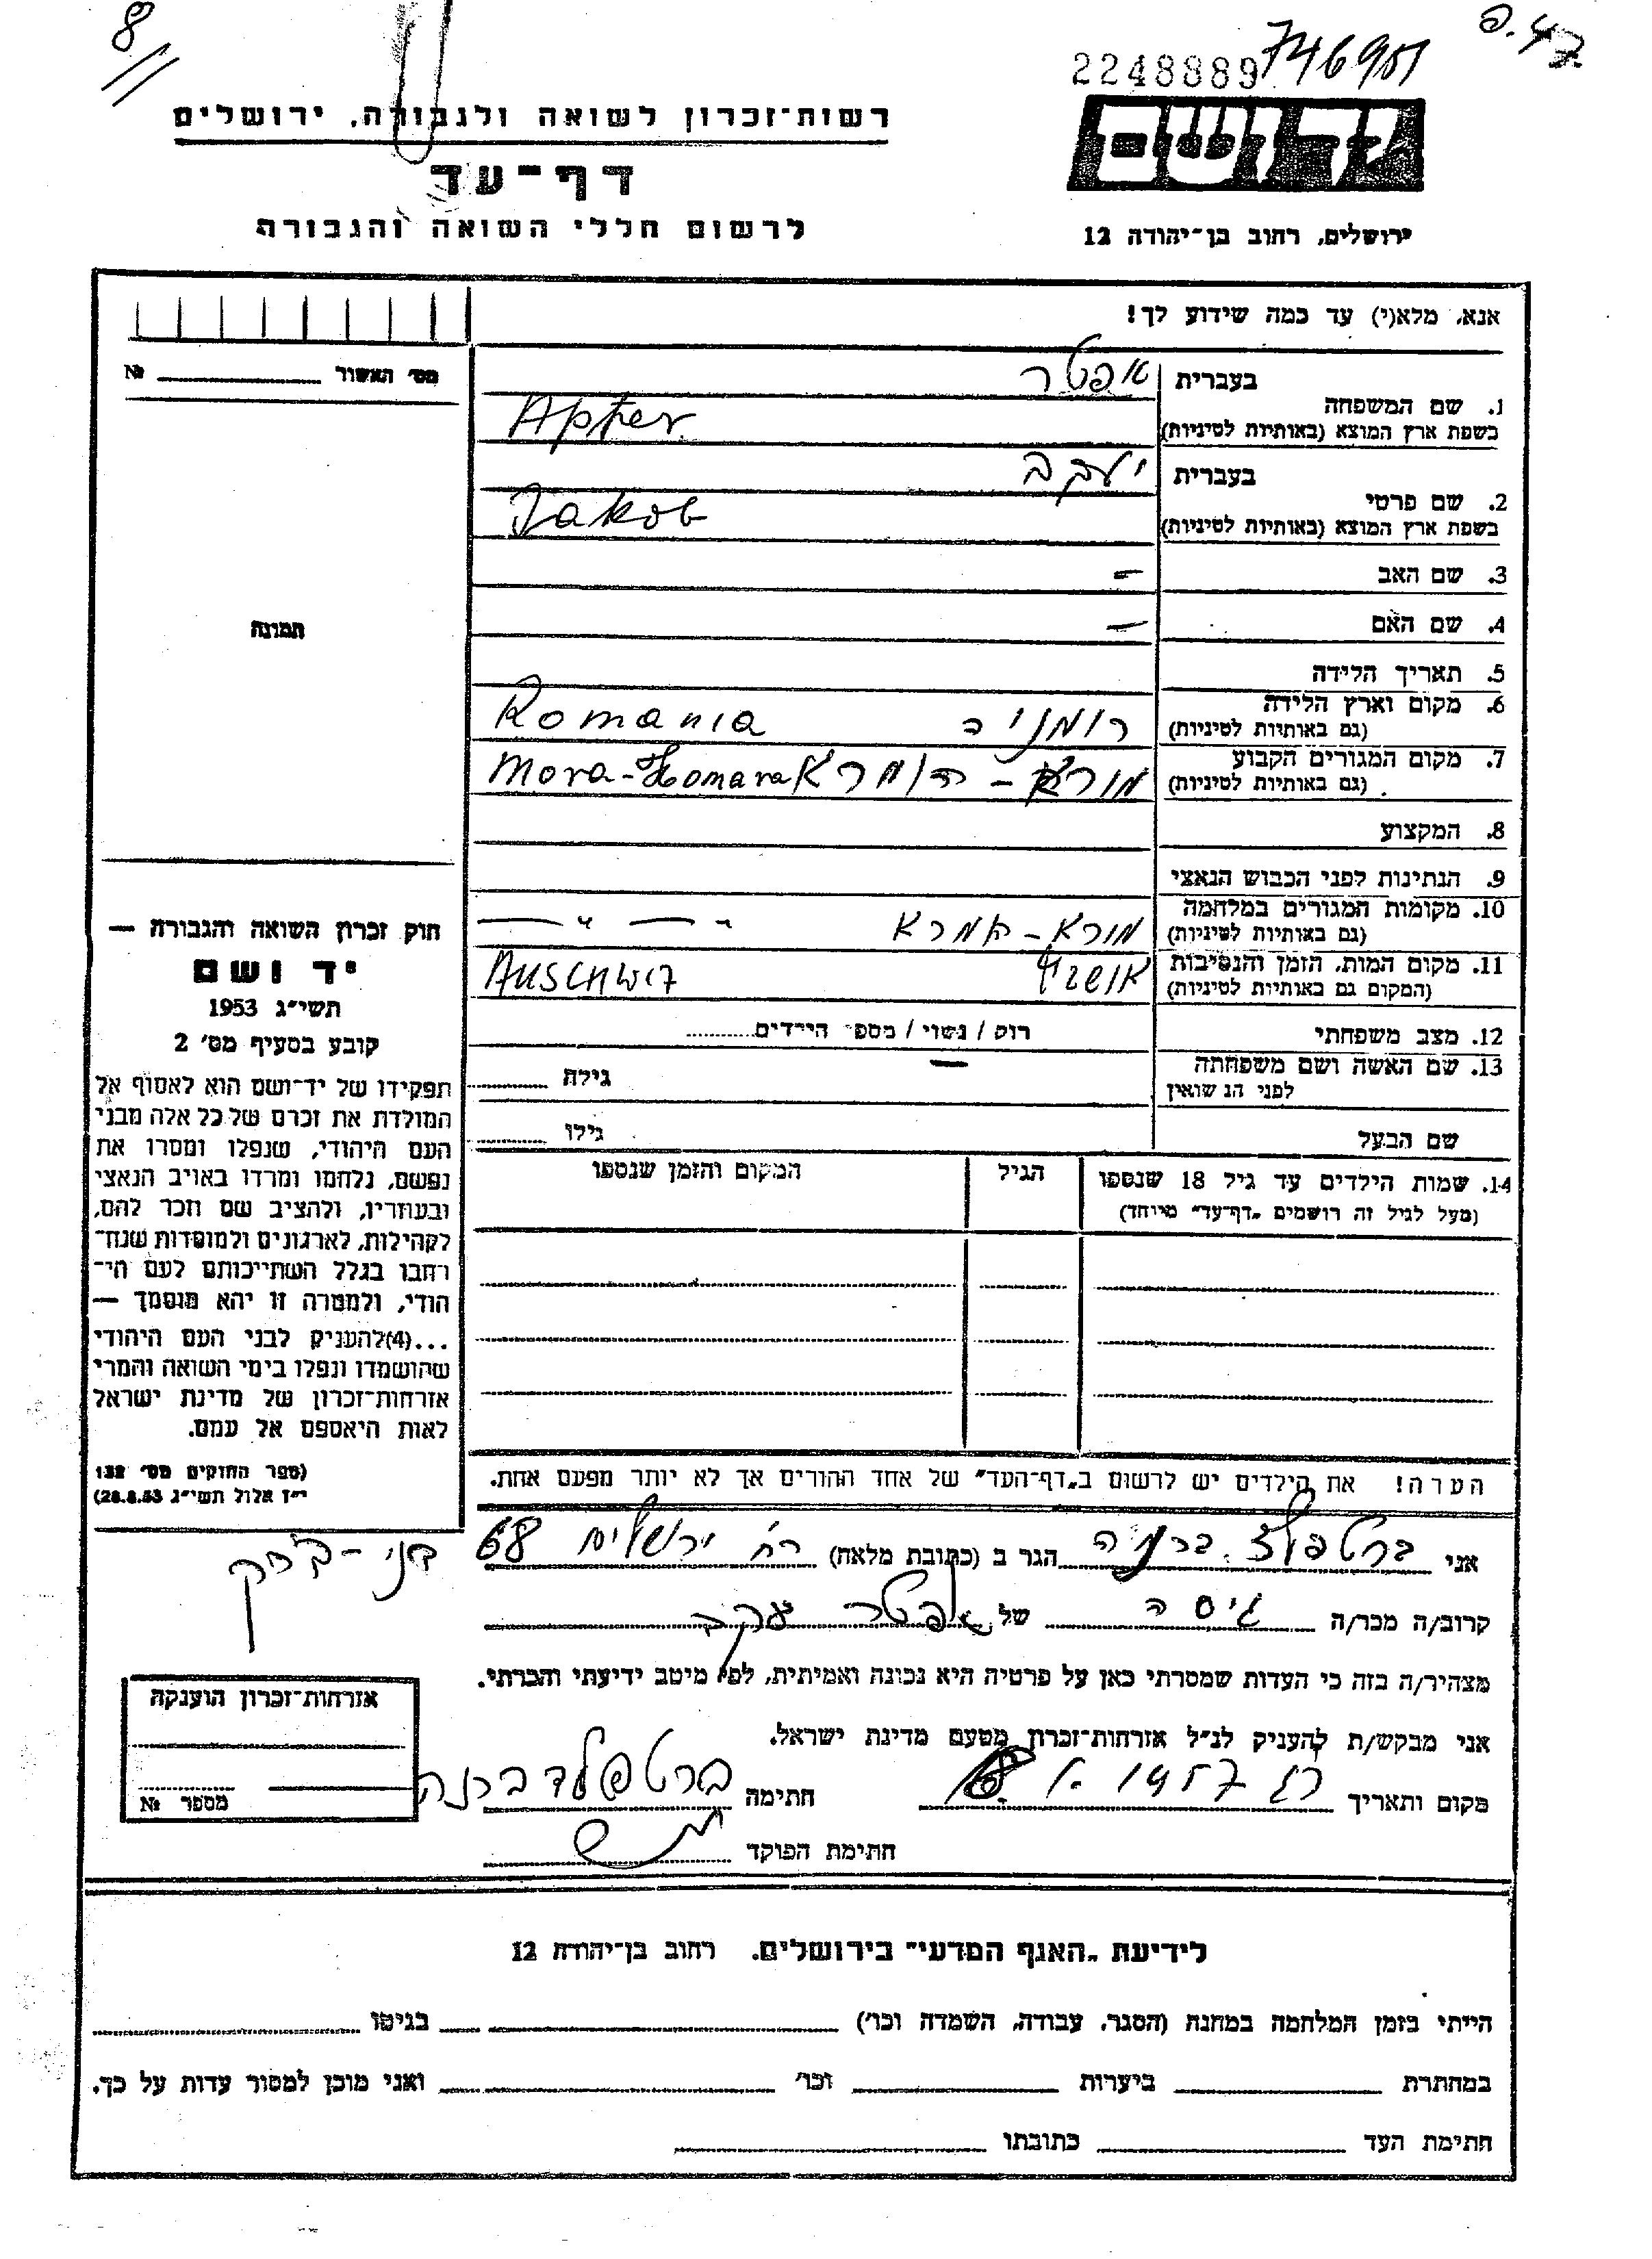 8
פ. 47
2248889
רשות־זכרון לשואה ולגבורה, ירושלים
דף־עד
לרשום חללי השואה והגבורה
ידושם
ירושלים, רחוב בן־יהודה 12
אנא, מלא(י) עד כמה שידוע לך!
מס׳ האשור № 
בעברית אפטר
1. שם המשפחה
בשפת ארץ המוצא (באותיות לטיניות) Apter
בעברית יעקב
2. שם פרטי
בשפת ארץ המוצא (באותיות לטיניות) Jakob
3. שם האב –
4. שם האם –
תמונה
5. תאריך הלידה
6. מקום וארץ הלידה רומניה Romania
(גם באותיות לטיניות)
7. מקום המגורים הקבוע מורא - הומרא Mora-Homara
(גם באותיות לטיניות)
8. המקצוע
9. הנתינות לפני הכבוש הנאצי
10. מקומות המגורים במלחמה מורא - המרא — " — " —
(גם באותיות לטיניות)
11. מקום המות, הזמן והנסיבות אושביץ AUSCHWIZ
(המקום גם באותיות לטיניות)
12. מצב משפחתי רוק / נשוי / מספר הילדים
13. שם האשה ושם משפחתה – גילה
לפני הנשואין
שם הבעל גילו
14. שמות הילדים עד גיל 18 שנספו הגיל המקום והזמן שנספו
(מעל לגיל זה רושמים „דף־עד” מיוחד)
חוק זכרון השואה והגבורה —
יד ושם
תשי״ג 1953
קובע בסעיף מס׳ 2
תפקידו של יד־ושם הוא לאסוף אל
המולדת את זכרם של כל אלה מבני
העם היהודי, שנפלו ומסרו את
נפשם, נלחמו ומרדו באויב הנאצי
ובעוזריו, ולהציב שם וזכר להם,
לקהילות, לארגונים ולמוסדות שנח־
רחבו בגלל השתייכותם לעם הי־
הודי, ולמטרה זו יהא מוסמך —
...(4)להעניק לבני העם היהודי
שהושמדו ונפלו בימי השואה והמרי
אזרחות־זכרון של מדינת ישראל
לאות היאספם אל עמם.
(ספר החוקים מס׳ 132
י״ז אלול תשי״ג 28.8.53)
הערה! את הילדים יש לרשום ב„דף־העד” של אחד ההורים אך לא יותר מפעם אחת.
אני ברטפלד ברנה הגר ב (כתובת מלאה) רח׳ ירושלים 68 בני-ברק
קרוב/ה מכר/ה גיסה של אפטר יעקב
מצהיר/ה בזה כי העדות שמסרתי כאן על פרטיה היא נכונה ואמיתית, לפי מיטב ידיעתי והכרתי.
אני מבקש/ת להעניק לנ״ל אזרחות־זכרון מטעם מדינת ישראל.
מקום ותאריך 1957 חתימה ברטפלד ברנה
חתימת הפוקד
אזרחות־זכרון הוענקה
מספר №
לידיעת „האגף המדעי” בירושלים. רחוב בן־יהודה 12
הייתי בזמן המלחמה במחנה (הסגר, עבודה, השמדה וכו׳) בגיטו
במחתרת ביערות וכו׳ ואני מוכן למסור עדות על כך.
חתימת העד כתובתו